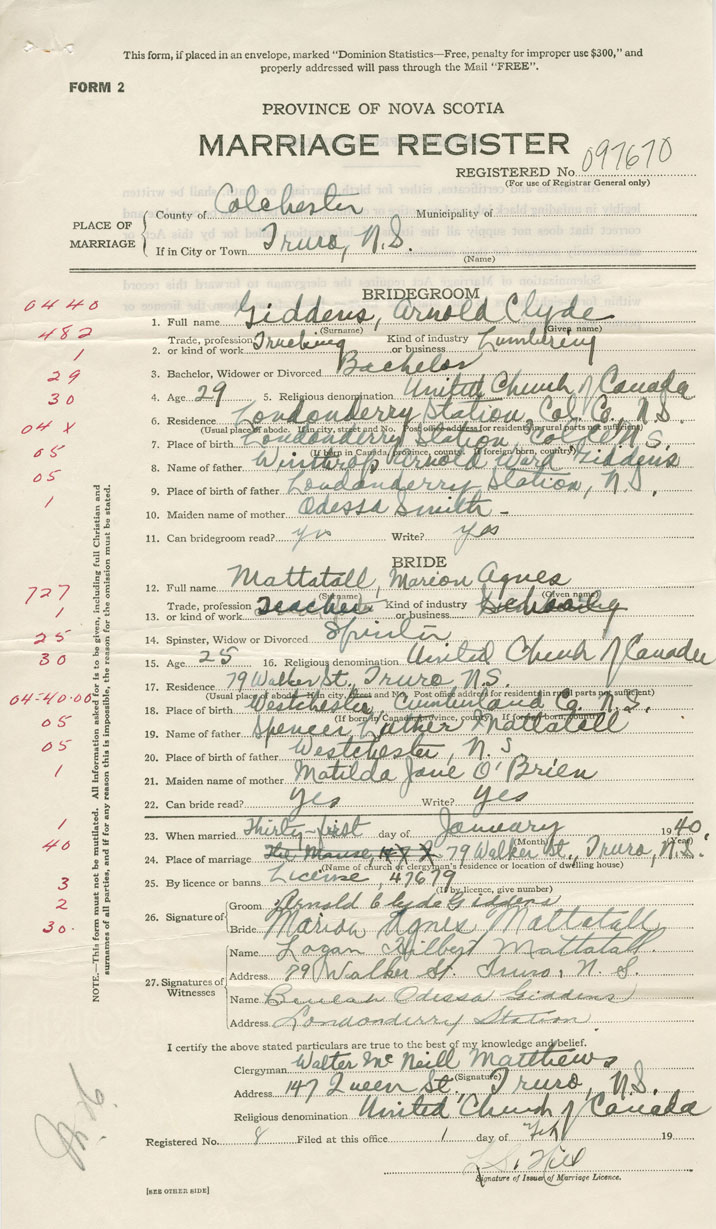 This form, if placed in an envelope, marked "Dominion Statistics—Free, penalty for improper use $300," and
properly addressed will pass through the Mail "FREE".
FORM 2
PROVINCE OF NOVA SCOTIA
MARRIAGE REGISTER
REGISTERED No. 097670
(For use of Registrar General only)
PLACE OF MARRIAGE
County of Colchester Municipality of
If in City or Town Truro, N.S.
(Name)
BRIDEGROOM
0440
1. Full name Giddens, Arnold Clyde
(Surname) (Given name)
482
2. Trade, profession or kind of work Trucking Kind of industry or business Lumbering
1
3. Bachelor, Widower or Divorced Bachelor
29
4. Age 29 5. Religious denomination United Church of Canada
30
6. Residence Londonderry Station, Col. Co., N.S.
(Usual place of abode. If in city, street and No. Post office address for resident in rural parts not sufficient)
04 X
7. Place of birth Londonderry Station, Colch N.S.
(If born in Canada, province, county. If foreign born, country)
05
8. Name of father Winthrop Arnold Ward Giddens
05
9. Place of birth of father Londonderry Station, N.S.
1
10. Maiden name of mother Odessa Smith -
11. Can bridegroom read? yes Write? yes
BRIDE
12. Full name Mattatall, Marion Agnes
(Surname) (Given name)
727
13. Trade, profession or kind of work Teacher Kind of industry or business
1
14. Spinster, Widow or Divorced Spinster
25
15. Age 25 16. Religious denomination United Church of Canada
30
17. Residence 79 Walker St., Truro N.S.
(Usual place of abode. If in city, street and No. Post office address for resident in rural parts not sufficient)
04-40.00
18. Place of birth Westchester, Cumberland Co. N.S.
(If born in Canada, province, county. If foreign born, country)
05
19. Name of father Spencer Luther Mattatall
05
20. Place of birth of father Westchester, N.S
1
21. Maiden name of mother Matilda Jane O'Brien
22. Can bride read? Yes Write? Yes
1
23. When married Thirty-first day of January 1940.
(Month) (Year)
40
24. Place of marriage The Manse, 79 Walker St., Truro, N.S.
(Name of church or clergyman's residence or location of dwelling house)
3
25. By licence or banns License, 47679
(If by licence, give number)
2
26. Signature of Groom Arnold Clyde Giddens
30.
Bride Marion Agnes Mattatall
27. Signatures of Witnesses
Name Logan Hilbert Mattatall
Address 79 Walker St. Truro, N.S.
Name Beulah Odessa Giddens
Address Londonderry Station
I certify the above stated particulars are true to the best of my knowledge and belief.
Clergyman Walter McNeill Matthews
(Signature)
Address 147 Queen St., Truro, N.S.
Religious denomination United Church of Canada
Registered No. 8 Filed at this office 1 day of Feb 19
L.S. Hill
Signature of Issuer of Marriage Licence.
[SEE OTHER SIDE]
NOTE.—This form must not be mutilated. All Information asked for is to be given, including full Christian and
surnames of all parties, and if for any reason this is impossible, the reason for the omission must be stated.